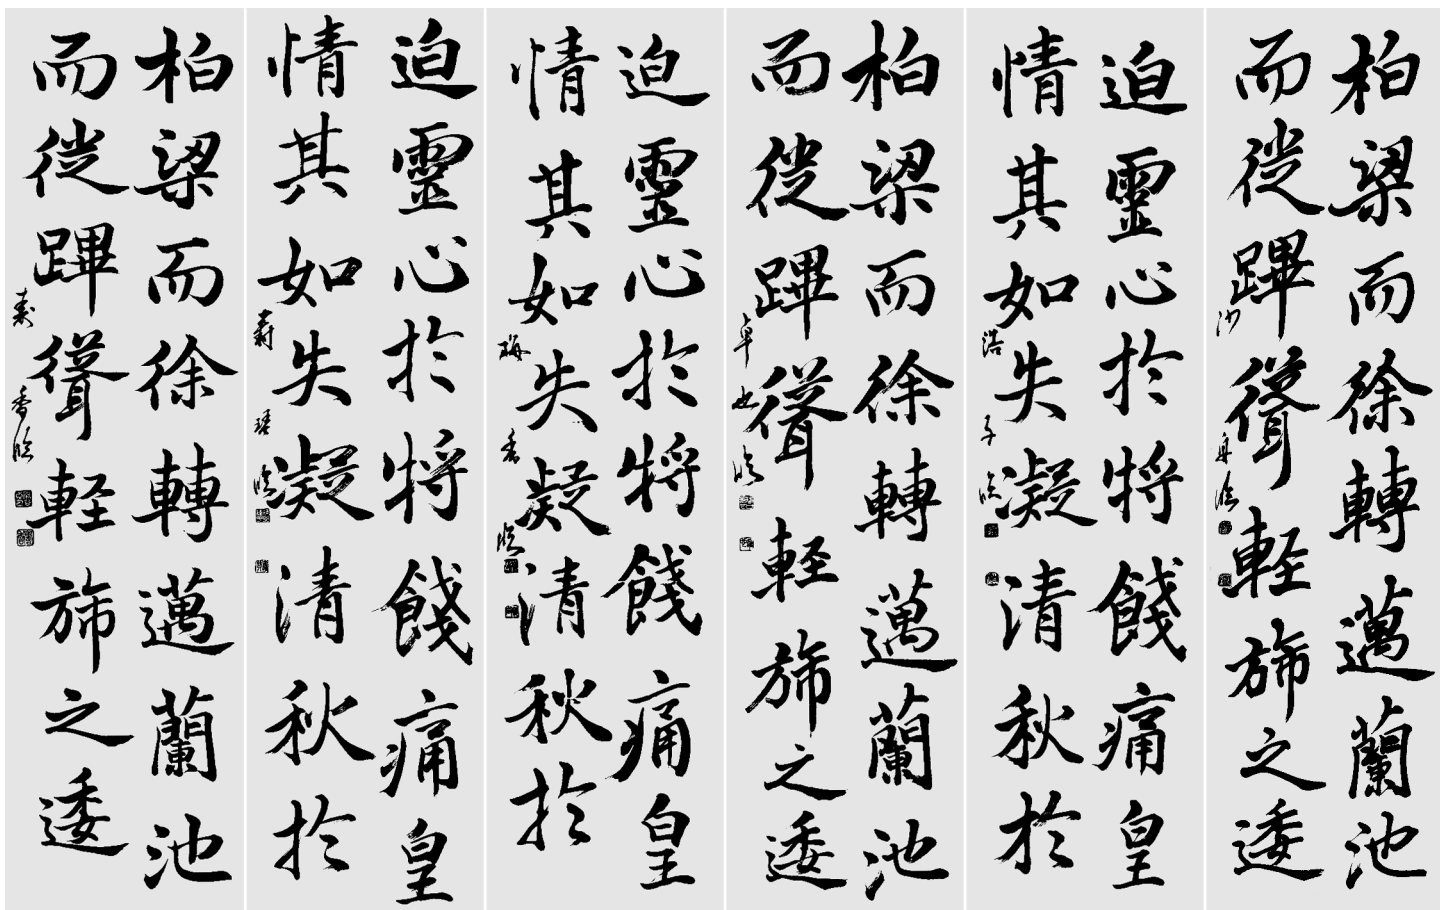 柏梁而徐轉邁蘭池
而從蹕聳輕旆之逶
迫靈心於將餞痛皇
情其如失凝清秋於
浩子臨
柏梁而徐轉邁蘭池
而從蹕聳輕旆之逶
卓也臨
迫靈心於將餞痛皇
情其如失凝清秋於
梅香臨
迫靈心於將餞痛皇
情其如失凝清秋於
柏梁而徐轉邁蘭池
而從蹕聳輕旆之逶
香臨